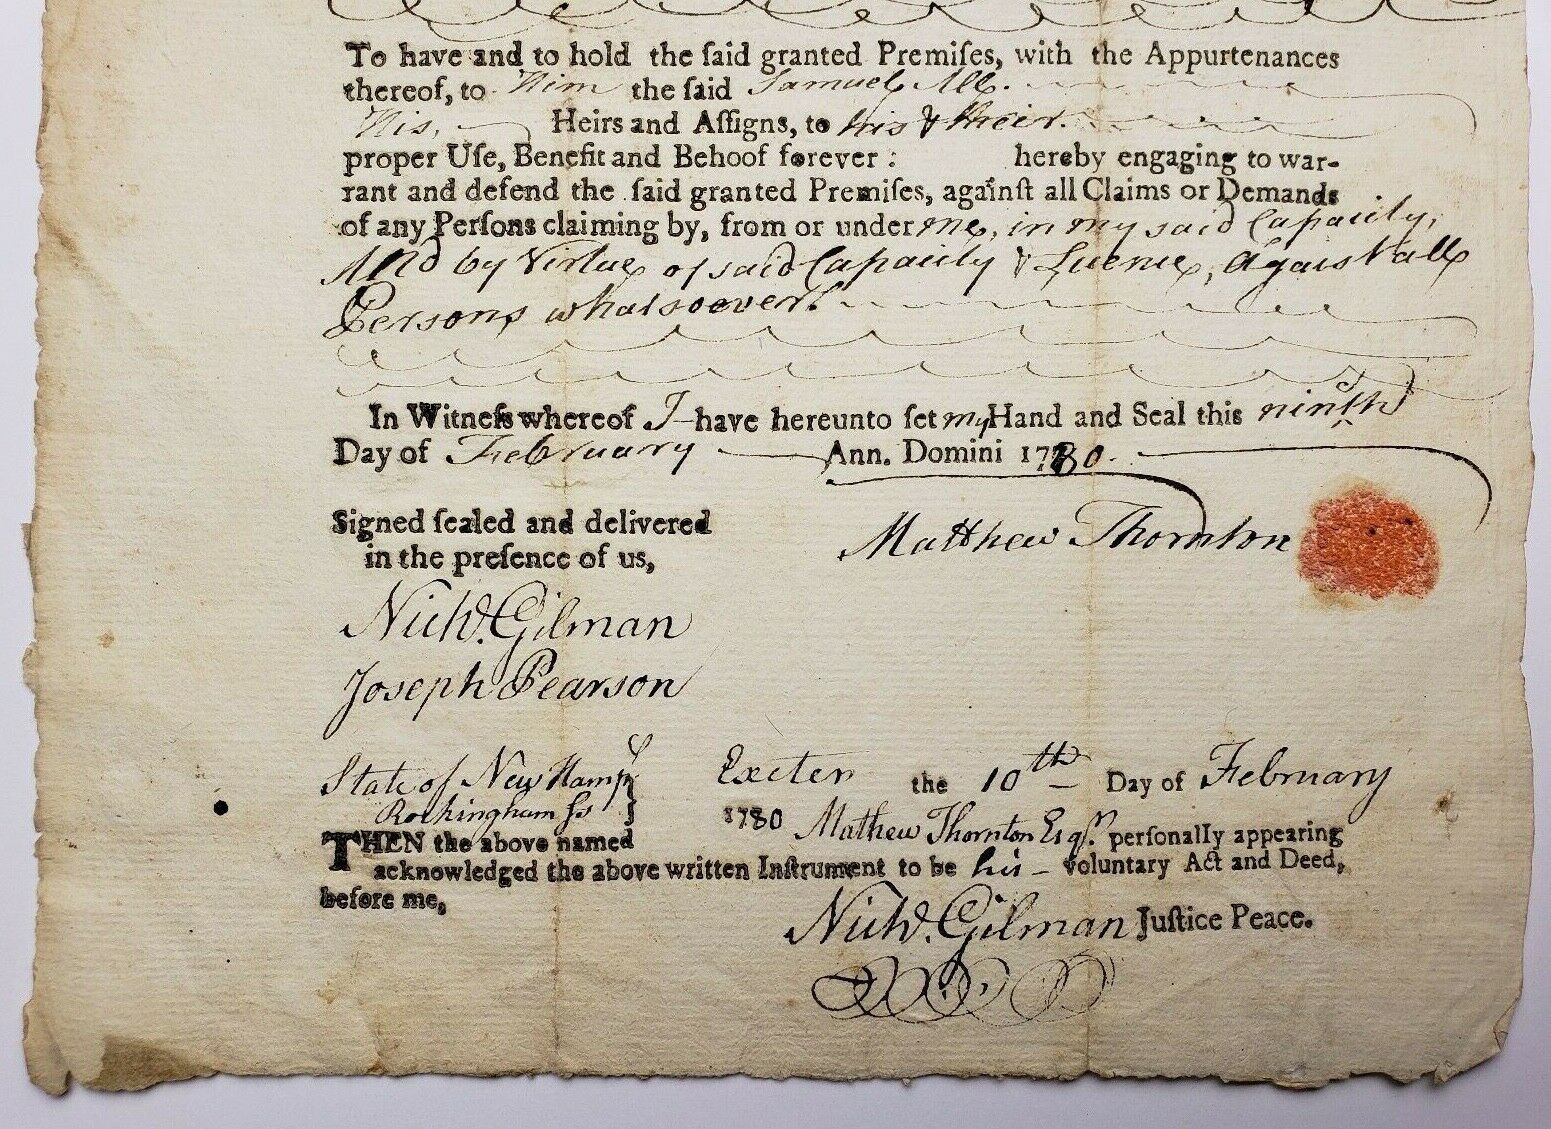 To have and to hold the ſaid granted Premiſes, with the Appurtenances
thereof, to Him the ſaid Samuel
His, Heirs and Aſſigns, to his & their.
proper Uſe, Benefit and Behoof forever : hereby engaging to war-
rant and defend the ſaid granted Premiſes, againſt all Claims or Demands
of any Perſons claiming by, from or under me, in my said Capacity,
And by Virtue of said Capacity & Agaist all
Persons whatsoever.
In Witneſs whereof I have hereunto ſet my Hand and Seal this ninth
Day of February Ann. Domini 1780.
Signed ſealed and delivered
in the preſence of us,
Matthew Thornton
Nich. Gilman
Joseph Pearson
State of New Hamp
Rockingham ſs
Exeter the 10th Day of February
1780 Mathew Thornton Esqr. perſonally appearing
THEN the above named
acknowledged the above written Inſtrument to be his voluntary Act and Deed,
before me,
Nich. Gilman Juſtice Peace.